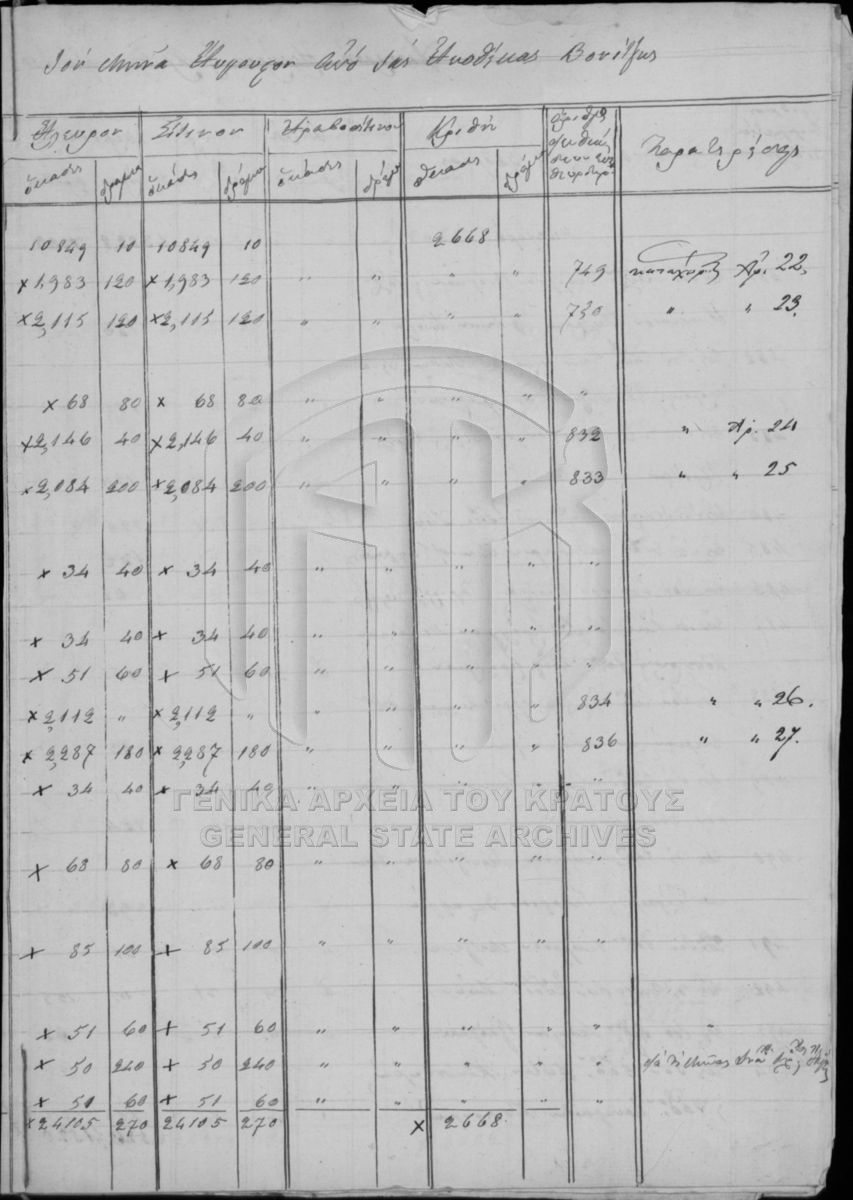 τὸν μῆνα Αὔγουστον ἀπὸ τὰς Ἀποθήκας Βονίτζης
Ἄλευρον Σίτινον Ἀραβοσίτινον Κριθὴ Παρατηρήσεις
ὀκάδες δράμια ὀκάδες δράμια ὀκάδες δράμια ὀκάδες δράμια
10849 10 10849 10 2668
× 1,983 120 × 1,983 120 " " " " 749 Ἀρ. 22,
× 2,115 120 × 2,115 120 " " " " 750 " " 23.
× 68 80 × 68 80 " " " " "
× 2,146 40 × 2,146 40 " " " " 832 " Ἀρ. 24
× 2,084 200 × 2,084 200 " " " " 833 " " 25
× 34 40 × 34 40 " " " " "
× 34 40 × 34 40 " " " " "
× 51 60 × 51 60 " " " " "
× 2,112 " × 2,112 " " " " " 834 " " 26.
× 2,287 180 × 2,287 180 " " " " 836 " " 27.
× 34 40 × 34 40 " " " " "
ΓΕΝΙΚΑ ΑΡΧΕΙΑ ΤΟΥ ΚΡΑΤΟΥΣ
GENERAL STATE ARCHIVES
× 68 80 × 68 80 " " " " "
× 85 100 × 85 100 " " " " "
× 51 60 × 51 60 " " " " " "
× 50 240 × 50 240 " " " " "
× 51 60 × 51 60 " " " " "
× 24105 270 24105 270 × 2668.